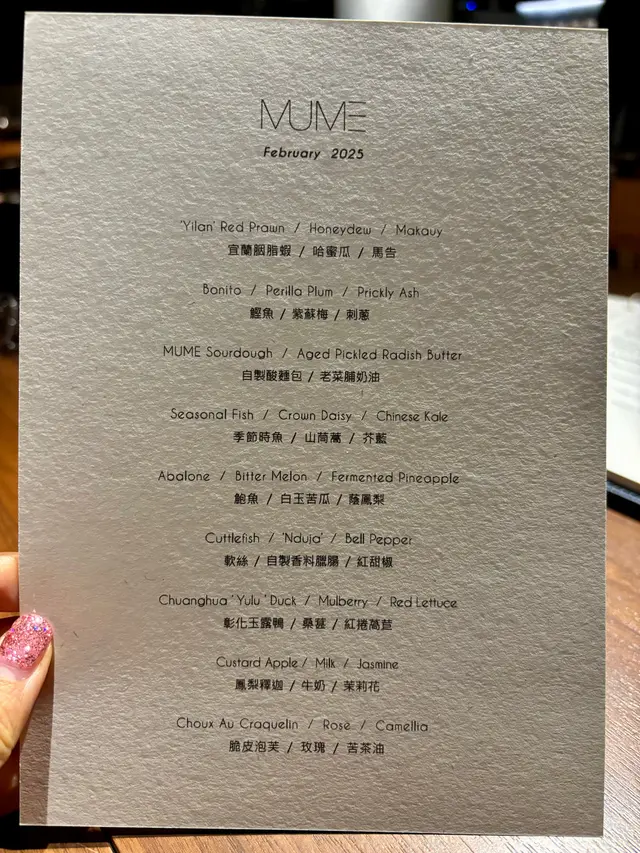 MUME
February 2025
'Yilan' Red Prawn / Honeydew / Makauy
宜蘭胭脂蝦 / 哈蜜瓜 / 馬告
Bonito / Perilla Plum / Prickly Ash
鰹魚 / 紫蘇梅 / 刺蔥
MUME Sourdough / Aged Pickled Radish Butter
自製酸麵包 / 老菜脯奶油
Seasonal Fish / Crown Daisy / Chinese Kale
季節時魚 / 山茼蒿 / 芥藍
Abalone / Bitter Melon / Fermented Pineapple
鮑魚 / 白玉苦瓜 / 蔭鳳梨
Cuttlefish / 'Nduja' / Bell Pepper
軟絲 / 自製香料臘腸 / 紅甜椒
Chuanghua 'Yulu' Duck / Mulberry / Red Lettuce
彰化玉露鴨 / 桑葚 / 紅捲萵苣
Custard Apple / Milk / Jasmine
鳳梨釋迦 / 牛奶 / 茉莉花
Choux Au Craquelin / Rose / Camellia
脆皮泡芙 / 玫瑰 / 苦茶油